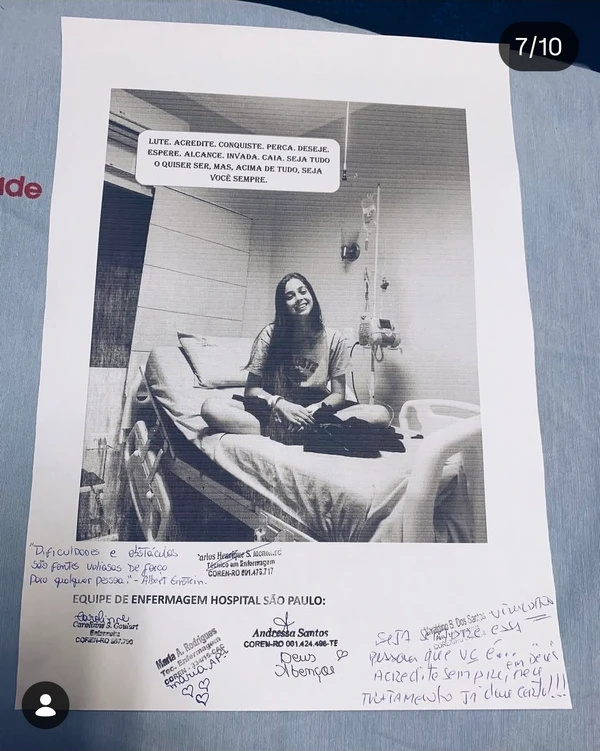 7/10
LUTE. ACREDITE. CONQUISTE. PERCA. DESEJE.
ESPERE. ALCANCE. INVADA. CAIA. SEJA TUDO
O QUISER SER, MAS, ACIMA DE TUDO, SEJA
VOCÊ SEMPRE.
"Dificuldades e obstáculos
são fontes valiosas de força
para qualquer pessoa."- Albert Einstein.
Carlos Henrique S.
Técnico em Enfermagem
COREN-RO 001.473.717
EQUIPE DE ENFERMAGEM HOSPITAL SÃO PAULO:
Caroline
Caroline S. Goulart
Enfermeira
COREN-RO
Maria A. Rodrigues
Tec. Enfermagem
COREN
Maria Ap.
Andressa Santos
COREN-RO 001.424.496-TE
Deus
Abençoe
B. Dos Santos
SEJA SEMPRE essa
pessoa que vc e...
Acredite sempre, em Deus
TRATAMENTO já deu certo!!!